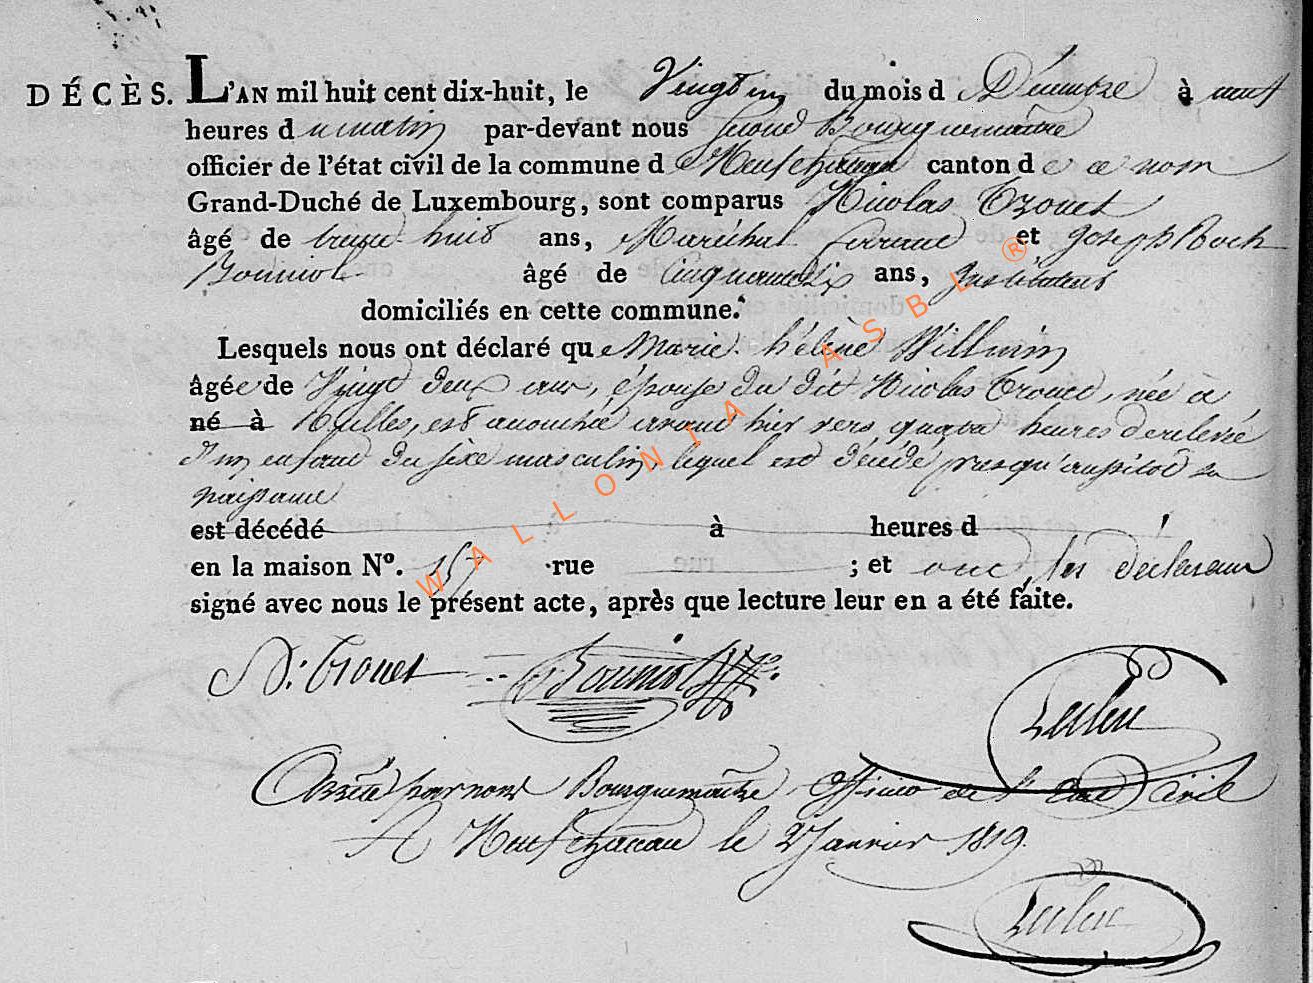 DÉCÈS. L'AN mil huit cent dix-huit, le Vingt un du mois d Décembre à neuf
heures du matin par-devant nous second Bourguemaitre
officier de l'état civil de la commune de Neufchateau canton de ce nom
Grand-Duché de Luxembourg, sont comparus Nicolas Trouet
âgé de trente huit ans, Maréchal ferrand et Joseph Roch
Bonniol âgé de Cinquante six ans, Instituteur
domiciliés en cette commune.
Lesquels nous ont déclaré que Marie hélène Willmin
âgée de Vingt deux ans, épouse du dit Nicolas Trouet, née à
né à Nolles, est accouchée avant hier vers quatre heures de relevée
d'un enfant du sixe masculin, lequel est décédé presqu'aussitot sa
naissance
est décédé à heures d
en la maison N°. 157 rue ; et ont les déclarans
signé avec nous le présent acte, après que lecture leur en a été faite.
N. Trouet Bonniol Leclerc
Arrêté par nous Bourguemaitre officier de l'Etat Civil
A Neufchateau le 2 Janvier 1819.
Leclerc
WALLONIA ASBL ®